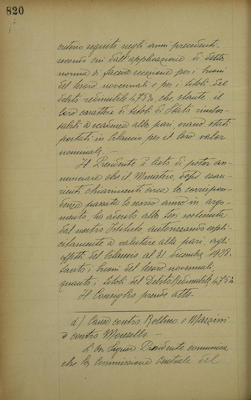 820
criterio seguito negli anni precedenti,
secondo cui dall'applicazione di detta
norma si faceva eccezione per i buoni
del tesoro novennali e per i titoli del
debito redimibile 4,75%, che stante il
loro carattere di titoli di Stato rimbor-
sabili a scadenza alla pari, erano stati
portati in bilancio per il loro valore
nominale.
Il Presidente è lieto di poter an-
nunciare che il Ministero, dopo esau-
rienti chiarimenti circa la corrispon-
denza passata lo scorso anno in argo-
mento, ha aderito alla tesi sostenuta
dal nostro Istituto autorizzando espli-
citamente a valutare alla pari, agli
effetti del bilancio al 31 dicembre 1928,
tanto i buoni del tesoro novennali,
quanto i titoli del Debito Redimibile 4,75%.
Il Consiglio prende atto.
a) Causa contro Bollino e Marzini
e contro Monsello.
Il Signor Presidente comunica
che la Commissione Centrale del